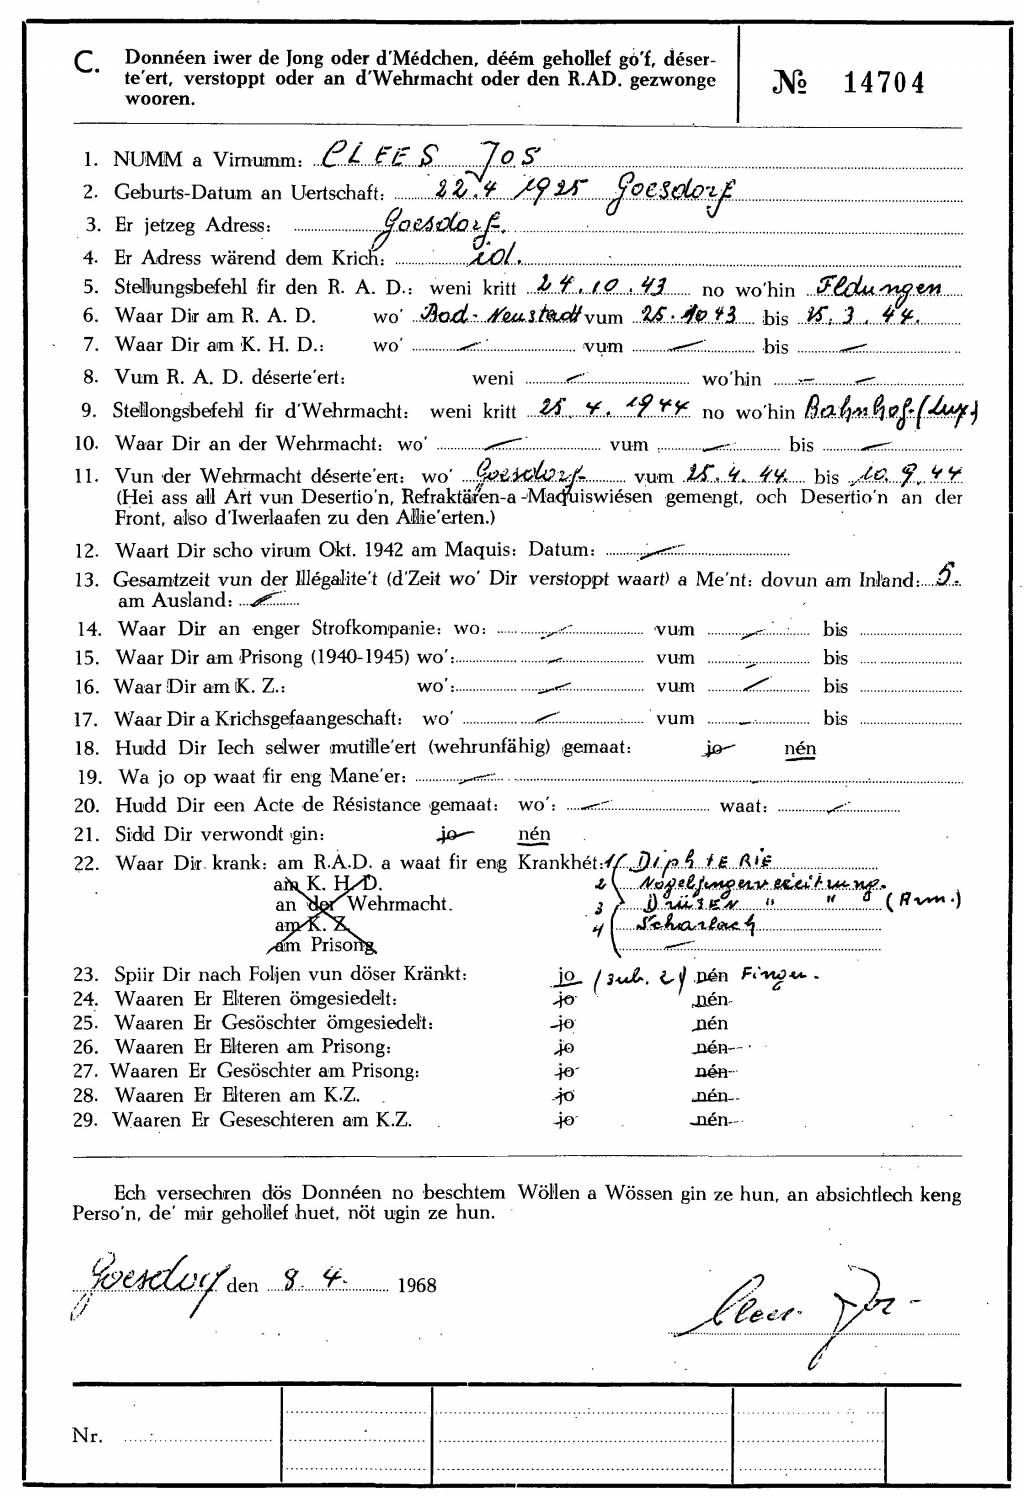 C. Donnéen iwer de Jong oder d'Médchen, déém gehollef go'f, déser-
te'ert, verstoppt oder an d'Wehrmacht oder den R.AD. gezwonge
wooren.
№ 14704
1. NUMM a Virnumm: CLEES JOS
2. Geburts-Datum an Uertschaft: 22.4 1925 Goesdorf
3. Er jetzeg Adress: Goesdorf.
4. Er Adress wärend dem Krich: id.
5. Stellungsbefehl fir den R. A. D.: weni kritt 24.10.43 no wo'hin Fldungen
6. Waar Dir am R. A. D. wo' Bad-Neustadt vum 25.10 43 bis 15.3.44.
7. Waar Dir am K. H. D.: wo' — vum — bis —
8. Vum R. A. D. déserte'ert: weni — wo'hin — —
9. Stellongsbefehl fir d'Wehrmacht: weni kritt 25.4.1944 no wo'hin Bahnhof (Lux.)
10. Waar Dir an der Wehrmacht: wo' — vum — bis —
11. Vun der Wehrmacht déserte'ert: wo' Goesdorf vum 25.4.44. bis 10.9.44
(Hei ass all Art vun Desertio'n, Refraktären-a-Maquiswiésen gemengt, och Desertio'n an der
Front, also d'Iwerlaafen zu den Allie'erten.)
12. Waart Dir scho virum Okt. 1942 am Maquis: Datum: —
13. Gesamtzeit vun der Illégalite't (d'Zeit wo' Dir verstoppt waart) a Me'nt: dovun am Inland: 5.
am Ausland: —
14. Waar Dir an enger Strofkompanie: wo: — vum — bis
15. Waar Dir am Prisong (1940-1945) wo': — vum — bis
16. Waar Dir am K. Z.: wo': — vum — bis
17. Waar Dir a Krichsgefaangeschaft: wo' — vum — bis
18. Hudd Dir Iech selwer mutille'ert (wehrunfähig) gemaat: jo nén
19. Wa jo op waat fir eng Mane'er: —
20. Hudd Dir een Acte de Résistance gemaat: wo': — waat: —
21. Sidd Dir verwondt gin: jo nén
22. Waar Dir krank: am R.A.D. a waat fir eng Krankhét: 1( DiphtERIE
am K. H. D. 2 Nagelfingervereiterung.
an der Wehrmacht. 3 DRÜSEN " " (Arm.)
am K. Z. 4 Scharlach
am Prisong —
23. Spiir Dir nach Foljen vun döser Kränkt: jo (sub. 2) nén Finger.
24. Waaren Er Elteren ömgesiedelt: jo nén
25. Waaren Er Gesöschter ömgesiedelt: jo nén
26. Waaren Er Elteren am Prisong: jo nén
27. Waaren Er Gesöschter am Prisong: jo nén
28. Waaren Er Elteren am K.Z. jo nén
29. Waaren Er Geseschteren am K.Z. jo nén
Ech versechren dös Donnéen no beschtem Wöllen a Wössen gin ze hun, an absichtlech keng
Perso'n, de' mir gehollef huet, nöt ugin ze hun.
Goesdorf den 8.4. 1968
Clees Jos
Nr.